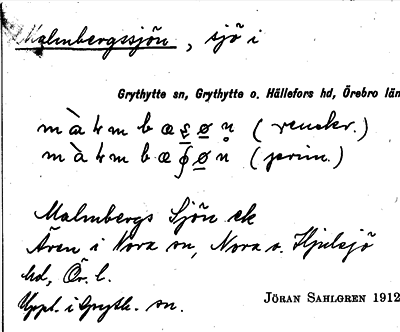 Malmbergssjön, sjö i
Grythytte sn, Grythytte o. Hällefors hd, Örebro län
(renskr.)
(prim.)
Malmbergs Sjön ek
Ären i Nora sn, Nora o. Hjulsjö
hd, Ör. l.
Uppt. i Grytt. sn.
JÖRAN SAHLGREN 1912